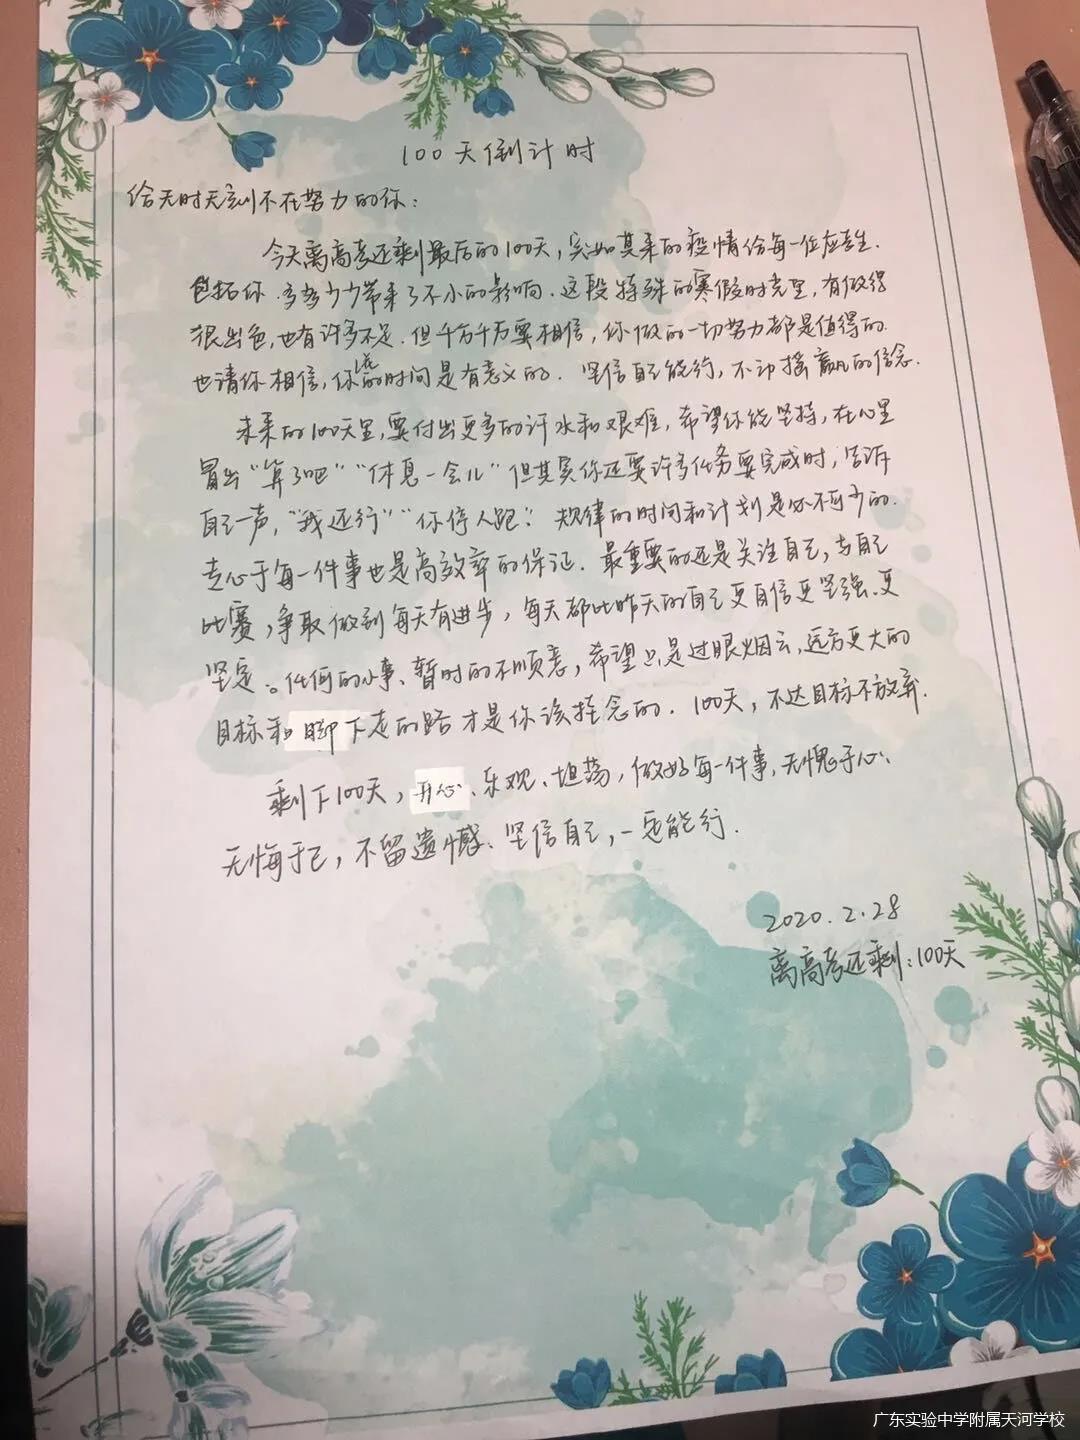 100天倒计时
给无时无刻不在努力的你：
今天离高考还剩最后的100天，突如其来的疫情给每一位应考生.
包括你.多多少少带来了不小的影响.这段特殊的寒假时光里，有做得
很出色，也有许多不足.但千万千万要相信，你做的一切努力都是值得的.
也请你相信，你花的时间是有意义的.坚信自己能行，不动摇赢的信念.
未来的100天里，要付出更多的汗水和艰难，希望你能坚持，在心里
冒出“算了吧”“休息一会儿”但其实你还要许多任务要完成时，告诉
自己一声，“我还行”“你停人跑”.规律的时间和计划是必不可少的.
走心于每一件事也是高效率的保证.最重要的还是关注自己，与自己
比赛，争取做到每天有进步，每天都比昨天的自己更自信更坚强.更
坚定。任何的小事、暂时的不顺意，希望只是过眼烟云，远方更大的
目标和脚下走的路才是你该挂念的.100天，不达目标不放弃.
剩下100天，开心、乐观、坦荡，做好每一件事，无愧于心、
无悔于己，不留遗憾、坚信自己，一定能行.
2020.2.28
离高考还剩：100天
广东实验中学附属天河学校